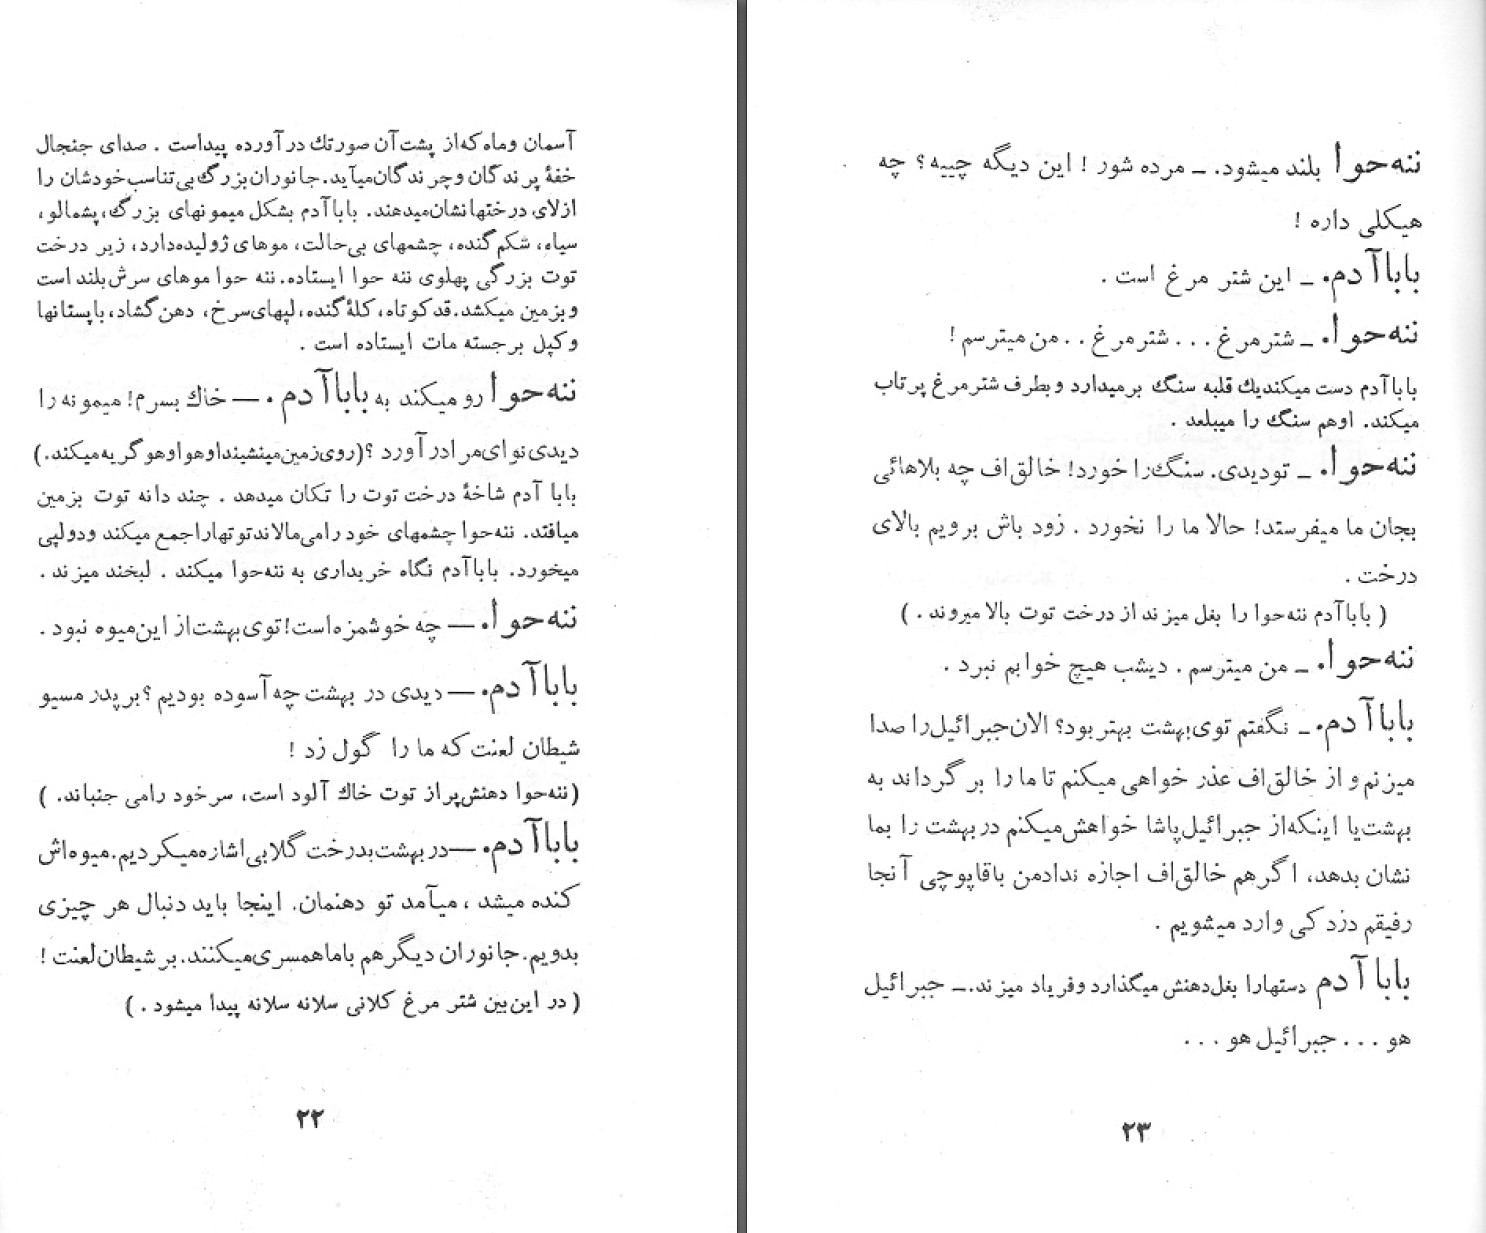 آسمان وماه که‌از پشت‌آن صورتك درآورده پیداست . صدای جنجال
خفهٔ پرندگان وچرندگان‌میآید. جانوران‌بزرگ بی‌تناسب‌خودشان را
ازلای درختها نشان‌میدهند. باباآدم بشکل میمونهای بزرگ، پشمالو،
سیاه، شکم‌گنده، چشمهای بی‌حالت، موهای ژولیده‌دارد، زیر درخت
توت بزرگی پهلوی ننه حوا ایستاده. ننه حوا موهای سرش بلند است
وبزمین میکشد. قدکوتاه، کلهٔ‌گنده، لپهای‌سرخ، دهن‌گشاد، باپستانها
وکپل برجسته مات ایستاده است .
ننه‌حوا رو میکند به باباآدم . — خاك بسرم! میمونه را
دیدی نوای‌مرا درآورد ؟ (روی‌زمین‌مینشیند اوهو اوهو گریه‌میکند.)
بابا آدم شاخهٔ درخت توت را تکان میدهد . چند دانه توت بزمین
میافتد. ننه‌حوا چشمهای خود رامی‌مالاند توتهارا جمع میکند ودولپی
میخورد. باباآدم نگاه خریداری به ننه‌حوا میکند . لبخند میزند .
ننه‌حوا. — چه خوشمزه‌است! توی‌بهشت‌از این‌میوه نبود .
باباآدم. — دیدی در بهشت چه آسوده بودیم ؟ بر پدر مسیو
شیطان لعنت که ما را گول زد !
(ننه‌حوا دهنش‌پر از توت خاك آلود است، سرخود رامی جنباند. )
باباآدم. — در بهشت بدرخت گلابی اشاره‌میکردیم. میوه‌اش
کنده میشد ، میآمد تو دهنمان. اینجا باید دنبال هر چیزی
بدویم. جانوران دیگرهم باماهمسری‌میکنند. بر شیطان‌لعنت !
( در این‌بین شتر مرغ کلانی سلانه سلانه پیدا میشود . )
۲۲
ننه‌حوا بلند میشود. ـ مرده شور ! این دیگه چییه ؟ چه
هیکلی داره !
باباآدم. ـ این شتر مرغ است .
ننه‌حوا. ـ شترمرغ . . . شترمرغ . . من میترسم !
باباآدم دست میکندیك قلبه سنگ برمیدارد وبطرف شترمرغ پرتاب
میکند. اوهم سنگ را میبلعد .
ننه‌حوا. ـ تودیدی. سنگ‌را خورد! خالق‌اف چه بلاهائی
بجان ما میفرستد! حالا ما را نخورد . زود باش برویم بالای
درخت .
( باباآدم ننه‌حوا را بغل میزند از درخت توت بالا میروند . )
ننه‌حوا. ـ من میترسم . دیشب هیچ خوابم نبرد .
باباآدم. ـ نگفتم توی‌بهشت بهتر بود؟ الان‌جبرائیل‌را صدا
میزنم و از خالق‌اف عذر خواهی میکنم تا ما را بر گرداند به
بهشت‌یا اینکه‌از جبرائیل‌پاشا خواهش‌میکنم در بهشت را بما
نشان بدهد، اگرهم خالق‌اف اجازه ندادمن باقاپوچی آنجا
رفیقم دزدکی وارد میشویم .
باباآدم دستهارا بغل‌دهنش میگذارد وفریاد میزند. ـ جبرائیل
هو . . . جبرائیل هو . . .
۲۳